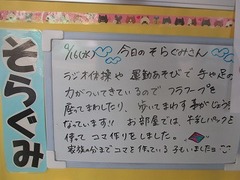 そらぐみ
9/16(水) 今日のそらぐみさん
ラジオ体操や運動あそびで手や足の
力がついてきているので フラフープを
座ってまわしたり、歩いてまわす事がじょうずに
なっています!! お部屋では、牛乳パックを
使って コマ作りをしました。
家族の分までコマを作っている子もいました